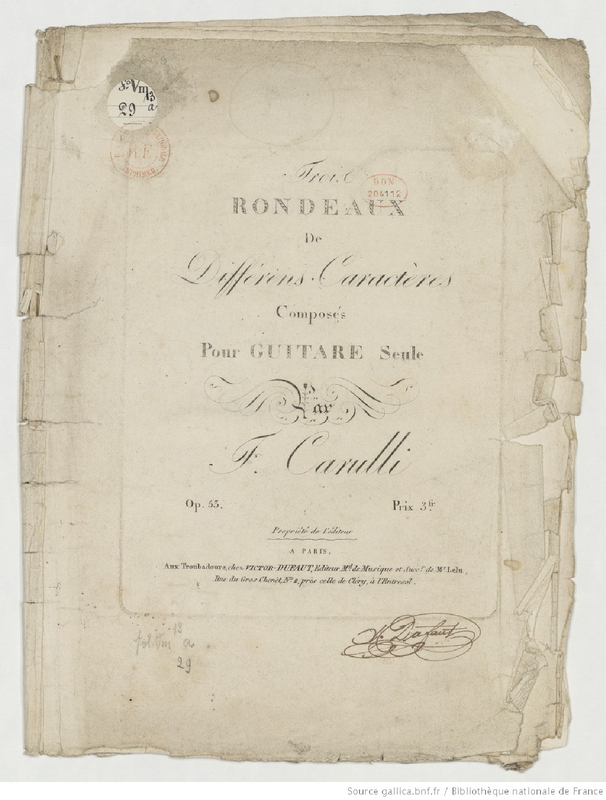 Fo Vm
13
29 a
R F
Trois
DON
204112
RONDEAUX
De
Différens Caractères
Composés
Pour GUITARE Seule
Par
F. Carulli
Op. 55. Prix 3 fr
Propriété de l'éditeur
A PARIS,
Aux Troubadours, chez VICTOR-DUFAUT, Editeur Md. de Musique et Succr. de Mr. Lelu,
Rue du Gros Chenêt, No. 2, près celle de Cléry, à l'Entresol.
V. Dufaut
13
fol. Vm a
29
Source gallica.bnf.fr / Bibliothèque nationale de France